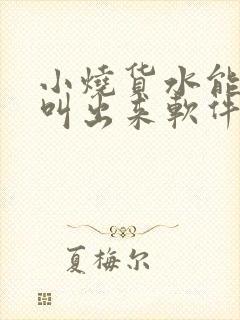 小燒货水能
叫出来軟件
夏梅尔